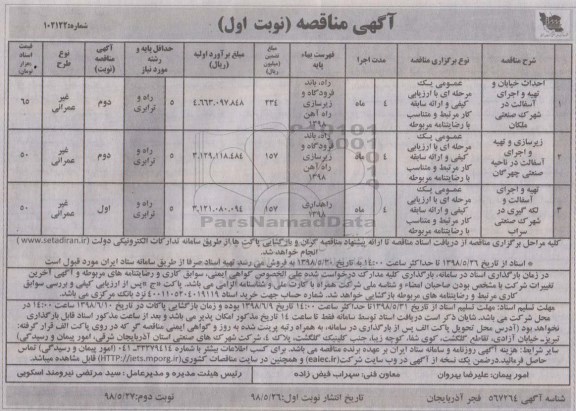 آگهی مناقصه (نوبت اول)
شماره: ۱۰۲۱۲۲
شرح مناقصه
نوع برگزاری مناقصه
مدت اجرا
فهرست بهاء پایه
مبلغ تضمین (میلیون ریال)
مبلغ برآورد اولیه (ریال)
حداقل پایه و رشته مورد نیاز
آگهی مناقصه (نوبت)
نوع طرح
قیمت اسناد هزار تومان
۱
احداث خیابان و تهیه و اجرای آسفالت در شهرک صنعتی ملکان
عمومی یک مرحله ای با ارزیابی کیفی و ارائه سابقه کار مرتبط و متناسب با رضایتنامه مربوطه
۴ ماه
راه، باند فرودگاه و زیرسازی راه آهن ۱۳۹۸
۲۳۴
۴.۶۶۳.۰۹۷.۸۴۸
۵ راه و ترابری
دوم
غیر عمرانی
۶۵
۲
زیرسازی و تهیه و اجرای آسفالت در ناحیه صنعتی چهرگان
عمومی یک مرحله ای با ارزیابی کیفی و ارائه سابقه کار مرتبط و متناسب با رضایتنامه مربوطه
۴ ماه
راه، باند فرودگاه و زیرسازی راه آهن ۱۳۹۸
۱۵۷
۳.۱۲۹.۱۱۸.۴۸۴
۵ راه و ترابری
دوم
غیر عمرانی
۵۰
۳
تهیه و اجرای آسفالت و لکه گیری در شهرک صنعتی سراب
عمومی یک مرحله ای با ارزیابی کیفی و ارائه سابقه کار مرتبط و متناسب با رضایتنامه مربوطه
۴ ماه
راهداری ۱۳۹۸
۱۵۷
۳.۱۲۱.۰۸۰.۰۹۴
۵ راه و ترابری
اول
غیر عمرانی
۵۰
ParsNamadData
کلیه مراحل برگزاری مناقصه از دریافت اسناد مناقصه تا ارائه پیشنهاد مناقصه گران و بازگشایی پاکت ها از طریق سامانه تدارکات الکترونیکی دولت (www.setadiran.ir) انجام خواهد شد.
* اسناد از تاریخ ۱۳۹۸/۵/۲۶ تا حداکثر ساعت ۱۴:۰۰ به تاریخ ۱۳۹۸/۵/۳۰ به فروش می رسد تهیه اسناد صرفا از طریق سامانه ستاد ایران مورد قبول است
در زمان بارگذاری اسناد در سامانه، بارگذاری کلیه مدارک درخواست شده علی الخصوص گواهی ایمنی، سوابق کاری و رضایتنامه های مربوطه و آگهی آخرین
تغییرات شرکت با مشخص بودن صاحبان امضاء و شناسه ملی شرکت همراه با کپی کارت ملی و شناسنامه الزامی می باشد. پاکت «ج» پس از ارزیابی کیفی و بررسی سوابق
کاری مرتبط و رضایتنامه های مربوطه بازگشایی خواهد شد.
سایر شرایط: هزینه آگهی روزنامه و سامانه ستاد ایران بر عهده برنده مناقصه می باشد.
امور پیمان: علیرضا بیروان
معاون فنی: سهراب فیض زاده
رئیس هیئت مدیره و مدیرعامل: سید مرتضی نیرومند اسکویی
شناسه آگهی ۵۶۷۷۶۴
فجر آذربایجان
تاریخ انتشار نوبت اول: ۹۸/۵/۲۶
نوبت دوم: ۹۸/۵/۲۷